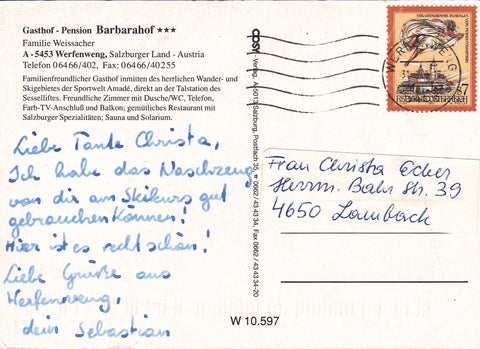 Gasthof - Pension Barbarahof ★★★
Familie Weissacher
A - 5453 Werfenweng, Salzburger Land - Austria
Telefon 06466/402, Fax: 06466/40255
Familienfreundlicher Gasthof inmitten des herrlichen Wander- und
Skigebietes der Sportwelt Amadé, direkt an der Talstation des
Sesselliftes. Freundliche Zimmer mit Dusche/WC, Telefon,
Farb-TV-Anschluß und Balkon; gemütliches Restaurant mit
Salzburger Spezialitäten; Sauna und Solarium.
Liebe Tante Christa,
Ich habe das Naschzeug
von dir am Skikurs gut
gebrauchen können!
Hier ist es recht schön!
Liebe Grüße aus
Werfenweng,
dein Sebastian
COSY-Verlag, A-5013 Salzburg, Postfach 35, ☎ 0662 / 43 43 34, Fax 0662 / 43 43 34-20
Frau Christa Ecker
Herrm. Bahr Str. 39
4650 Lambach
W 10.597